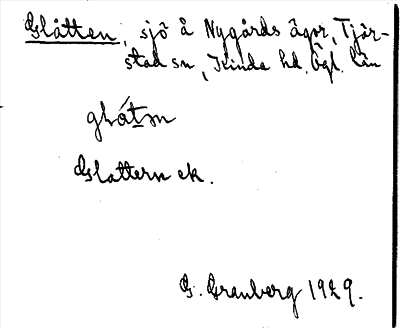 Glåtten, sjö å Nygårds ägor, Tjär-
stad sn, Kinda hd. Ögl. län
glåtṇ
Glattern ek.
G. Granberg 1929.